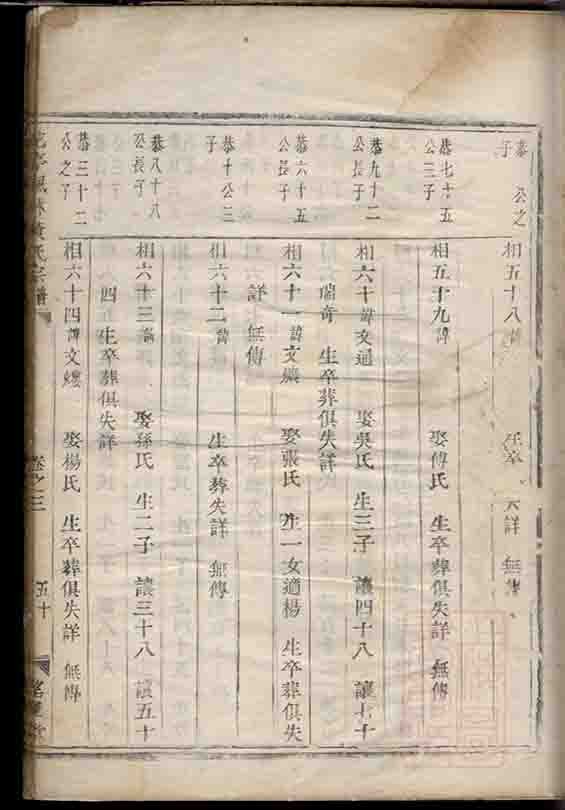 恭 公之子
相五十八諱 生卒 失詳 無傳
恭七十五公三子
相五十九諱 娶傅氏 生卒葬俱失詳 無傳
恭九十二公長子
相六十諱文通 娶吳氏 生三子 讓四十八 讓七十
瑞奇 生卒葬俱失詳
恭六十五公長子
相六十一諱文 娶張氏 生一女適楊 生卒葬俱失
詳 無傳
恭十公三子
相六十二諱 生卒葬失詳 無傳
恭八十八公長子
相六十三諱 娶孫氏 生二子 讓三十八 讓五十
四 生卒葬俱失詳
恭三十二公之子
相六十四諱文縷 娶楊氏 生卒葬俱失詳 無傳
氏宗譜 卷之三 五十